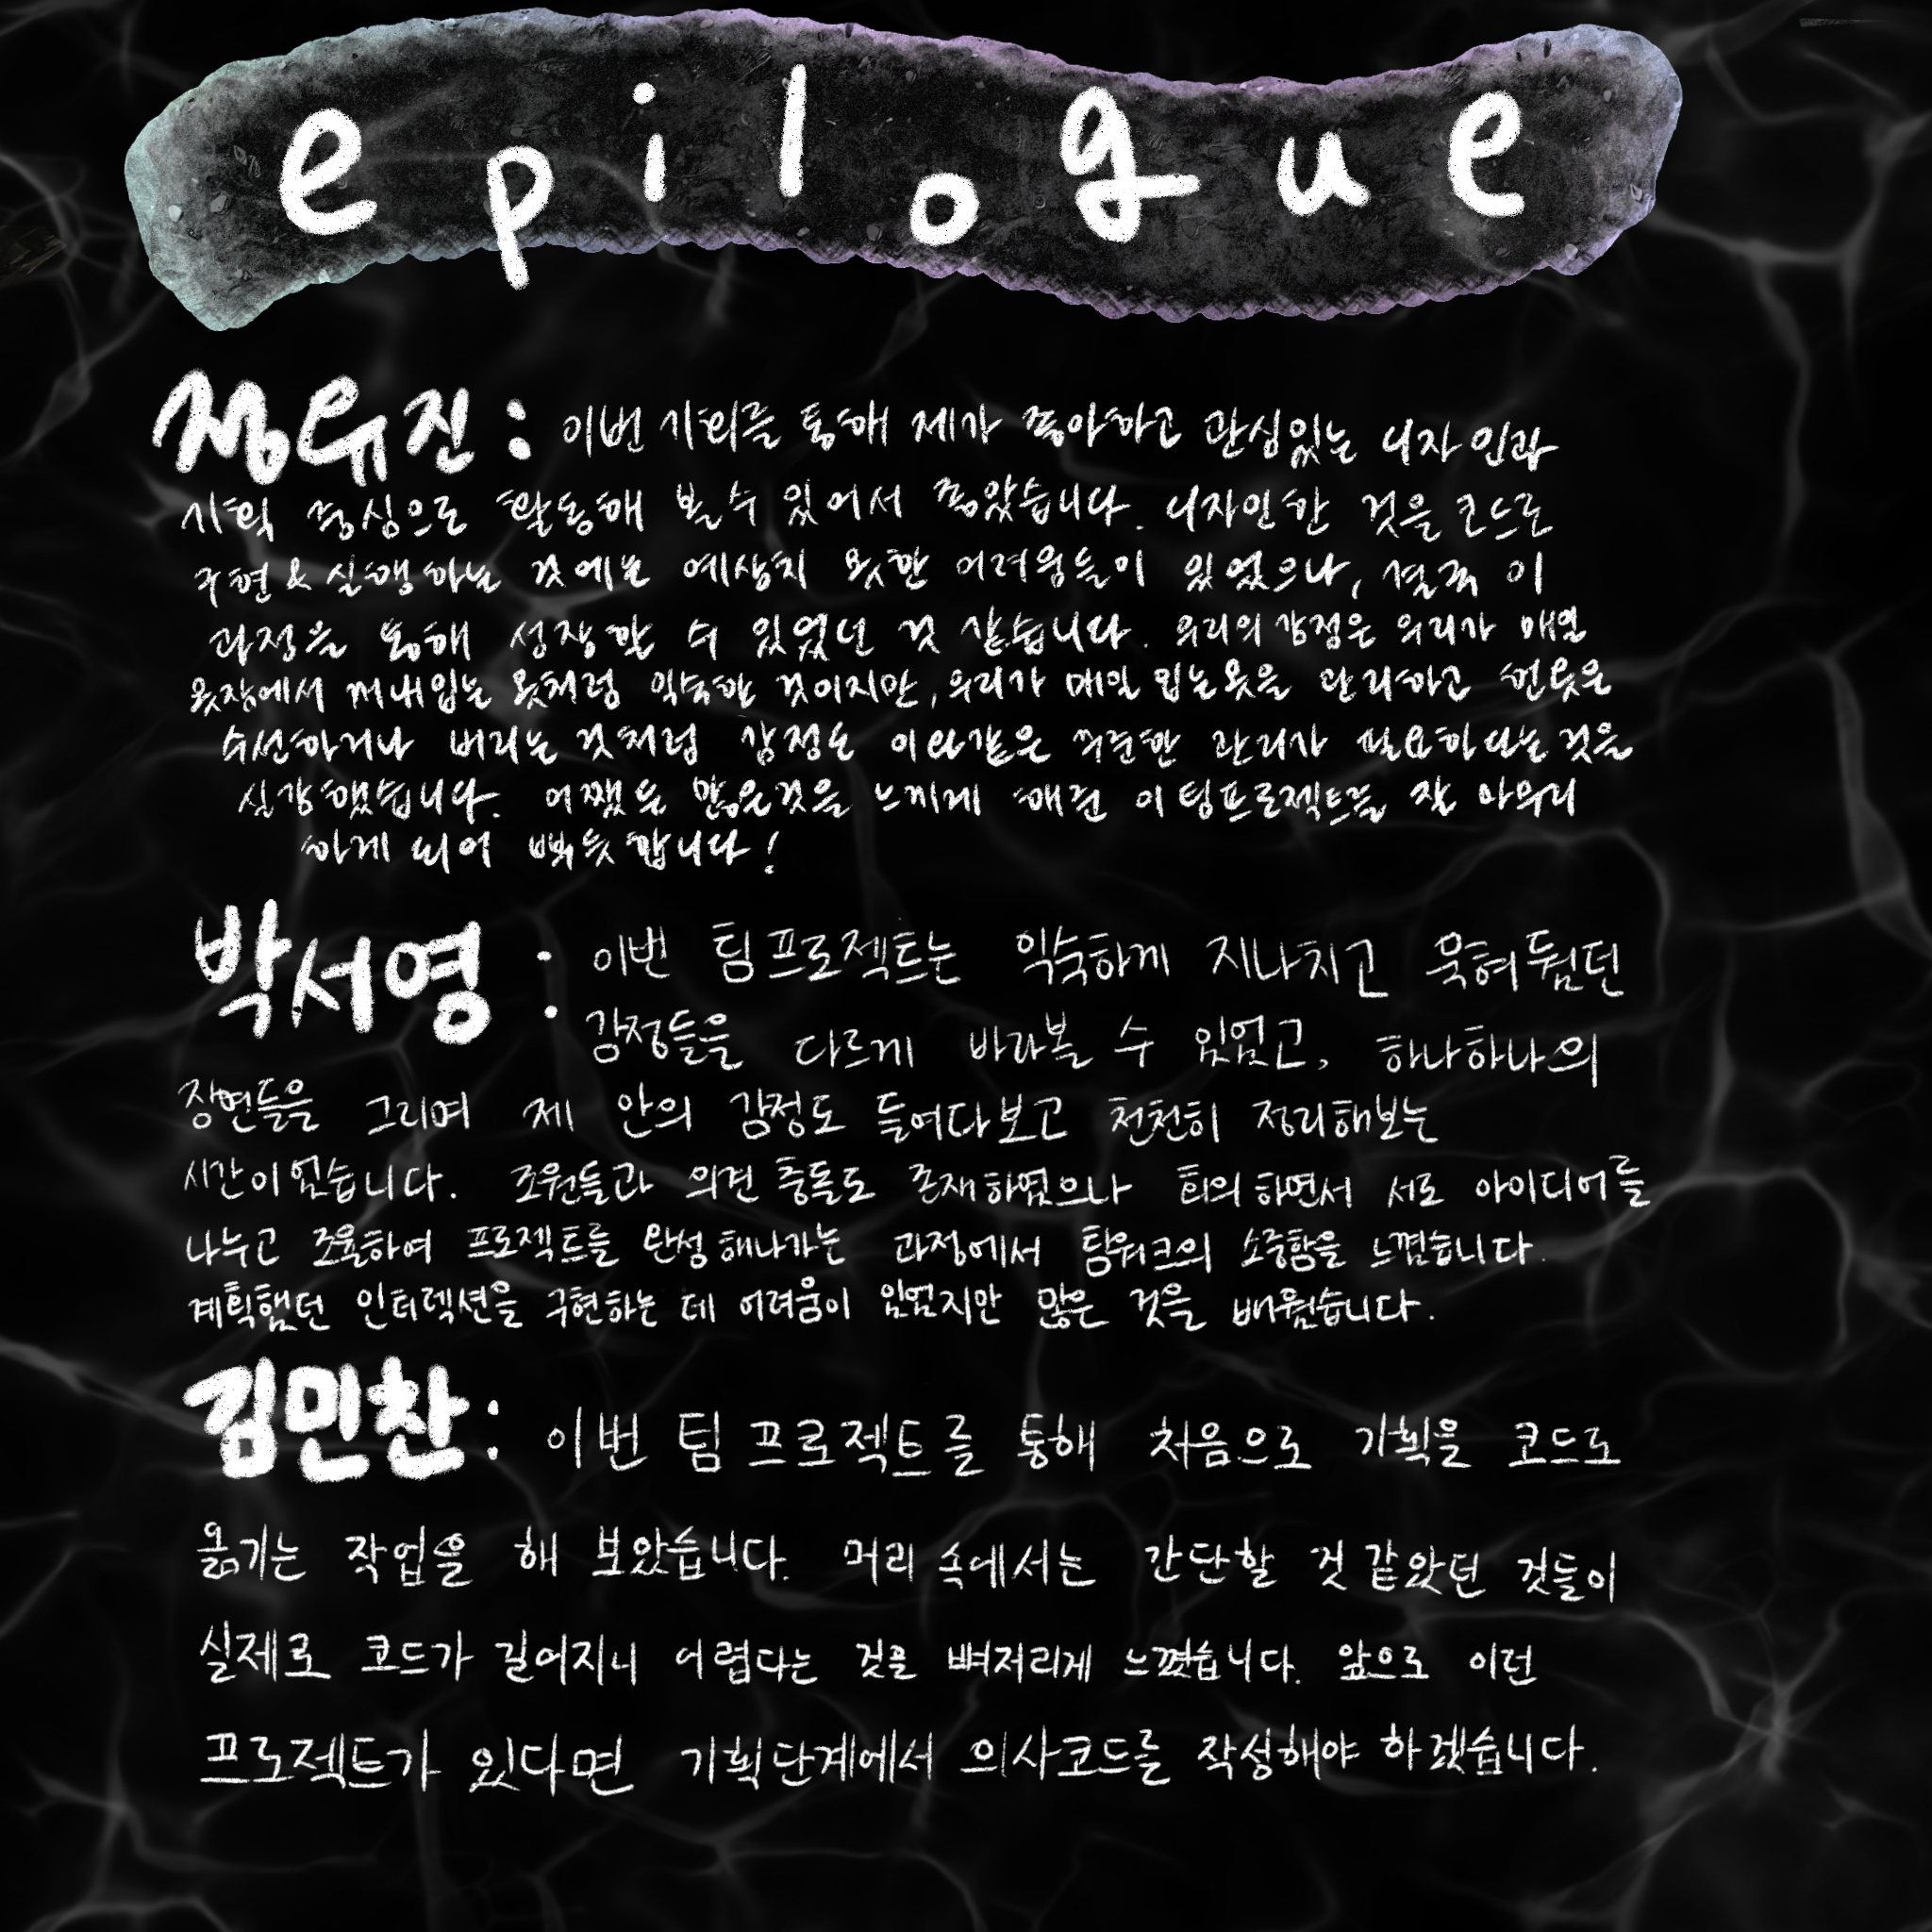 epilogue
정유진 : 이번 기회를 통해 제가 좋아하고 관심있는 디자인과
기획 중심으로 활동해 볼 수 있어서 좋았습니다. 디자인한 것을 코드로
구현 & 실행하는 것에는 예상치 못한 어려움들이 있었으나, 결국 이
과정을 통해 성장할 수 있었던 것 같습니다. 우리의 감정은 우리가 매일
옷장에서 꺼내입는 옷처럼 익숙한 것이지만, 우리가 매일 입는옷을 관리하고 헌옷은
수선하거나 버리는 것처럼 감정도 이와같은 꾸준한 관리가 필요하다는 것을
실감했습니다. 어쨌든 많은것을 느끼게 해준 이 팀프로젝트를 잘 마무리
하게 되어 뿌듯합니다!
박서영 : 이번 팀프로젝트는 익숙하게 지나치고 묵혀뒀던
감정들을 다르게 바라볼 수 있었고, 하나하나의
장면들을 그리며 제 안의 감정도 들여다보고 천천히 정리해보는
시간이었습니다. 조원들과 의견 충돌도 존재하였으나 회의하면서 서로 아이디어를
나누고 조율하여 프로젝트를 완성해나가는 과정에서 팀워크의 소중함을 느꼈습니다.
계획했던 인터렉션을 구현하는 데 어려움이 있었지만 많은 것을 배웠습니다.
김민찬: 이번 팀 프로젝트를 통해 처음으로 기획을 코드로
옮기는 작업을 해 보았습니다. 머리 속에서는 간단할 것 같았던 것들이
실제로 코드가 길어지니 어렵다는 것을 뼈저리게 느꼈습니다. 앞으로 이런
프로젝트가 있다면 기획단계에서 의사코드를 작성해야 하겠습니다.